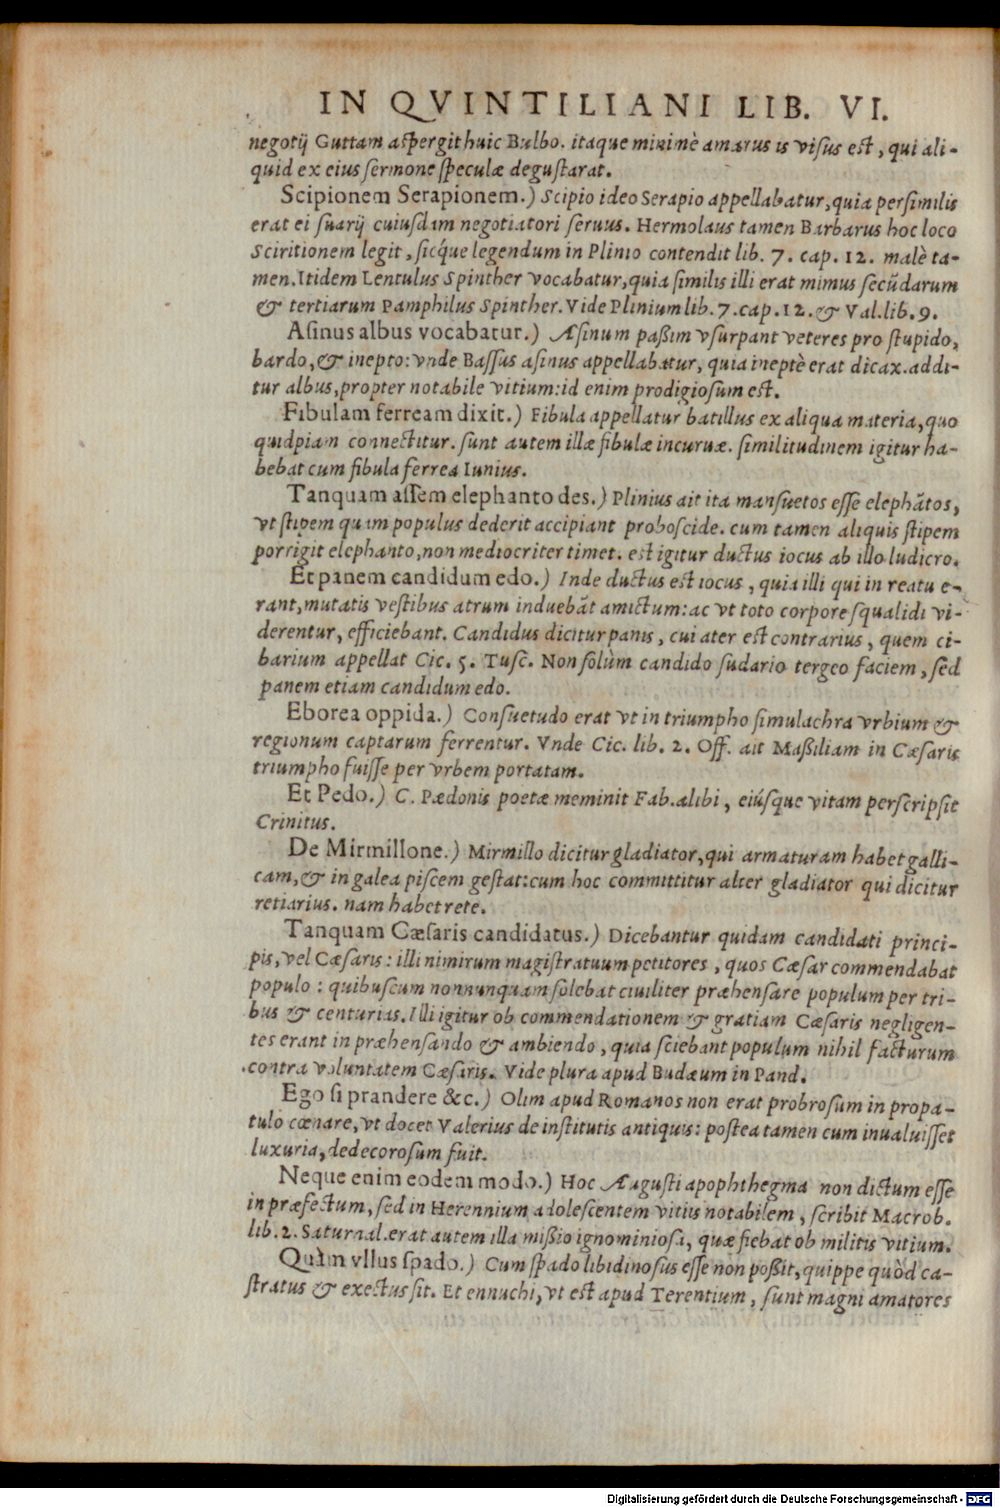 IN QVINTILIANI LIB. VI.
negotij Guttam aspergit huic Bulbo. itaque minimè amarus is visus est, qui ali-
quid ex eius sermone speculæ degustarat.
Scipionem Serapionem.) Scipio ideo Serapio appellabatur, quia persimilis
erat ei suarij cuiusdam negotiatori seruus. Hermolaus tamen Barbarus hoc loco
Sciritionem legit, sicq́ue legendum in Plinio contendit lib. 7. cap. 12. malè ta-
men. Itidem Lentulus Spinther vocabatur, quia similis illi erat mimus secũdarum
& tertiarum Pamphilus Spinther. Vide Plinium lib. 7. cap. 12. & Val. lib. 9.
Asinus albus vocabatur.) Asinum paßim vsurpant veteres pro stupido,
bardo, & inepto: vnde Bassus asinus appellabatur, quia ineptè erat dicax. addi-
tur albus, propter notabile vitium: id enim prodigiosum est.
Fibulam ferream dixit.) Fibula appellatur batillus ex aliqua materia, quo
quidpiam connectitur. sunt autem illæ fibulæ incuruæ. similitudinem igitur ha-
bebat cum fibula ferrea Iunius.
Tanquam assem elephanto des.) Plinius ait ita mansuetos esse elephãtos,
vt stipem quam populus dederit accipiant proboscide. cum tamen aliquis stipem
porrigit elephanto, non mediocriter timet. est igitur ductus iocus ab illo ludicro.
Et panem candidum edo.) Inde ductus est iocus, quia illi qui in reatu e-
rant, mutatis vestibus atrum induebãt amictum: ac vt toto corpore squalidi vi-
derentur, efficiebant. Candidus dicitur panis, cui ater est contrarius, quem ci-
barium appellat Cic. 5. Tusc. Non solùm candido sudario tergeo faciem, sed
panem etiam candidum edo.
Eborea oppida.) Consuetudo erat vt in triumpho simulachra vrbium &
regionum captarum ferrentur. Vnde Cic. lib. 2. Off. ait Maßiliam in Cæsaris
triumpho fuisse per vrbem portatam.
Et Pedo.) C. Pædonis poetæ meminit Fab. alibi, eiúsque vitam perscripsit
Crinitus.
De Mirmillone.) Mirmillo dicitur gladiator, qui armaturam habet galli-
cam, & in galea piscem gestat: cum hoc committitur alter gladiator qui dicitur
retiarius. nam habet rete.
Tanquam Cæsaris candidatus.) Dicebantur quidam candidati princi-
pis, vel Cæsaris: illi nimirum magistratuum petitores, quos Cæsar commendabat
populo: quibuscum nonnunquam solebat ciuiliter præhensare populum per tri-
bus & centurias. Illi igitur ob commendationem & gratiam Cæsaris negligen-
tes erant in præhensando & ambiendo, quia sciebant populum nihil facturum
contra voluntatem Cæsaris. Vide plura apud Budæum in Pand.
Ego si prandere &c.) Olim apud Romanos non erat probrosum in propa-
tulo cœnare, vt docet Valerius de institutis antiquis: postea tamen cum inualuisset
luxuria, dedecorosum fuit.
Neque enim eodem modo.) Hoc Augusti apophthegma non dictum esse
in præfectum, sed in Herennium adolescentem vitiis notabilem, scribit Macrob.
lib. 2. Saturnal. erat autem illa mißio ignominiosa, quæ fiebat ob militis vitium.
Quàm vllus spado.) Cum spado libidinosus esse non poßit, quippe quòd ca-
stratus & exectus sit. Et ennuchi, vt est apud Terentium, sunt magni amatores
Digitalisierung gefördert durch die Deutsche Forschungsgemeinschaft - DFG